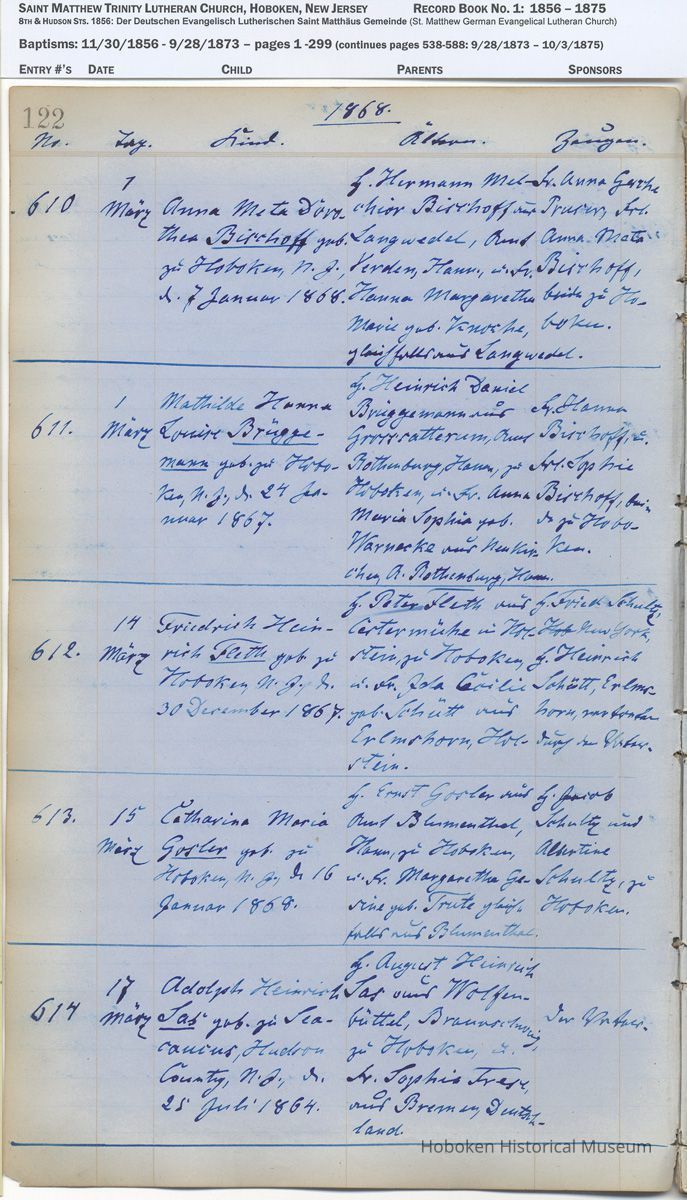 SAINT MATTHEW TRINITY LUTHERAN CHURCH, HOBOKEN, NEW JERSEY RECORD BOOK NO. 1: 1856 – 1875
8TH & HUDSON STS. 1856: Der Deutschen Evangelisch Lutherischen Saint Matthäus Gemeinde (St. Matthew German Evangelical Lutheran Church)
Baptisms: 11/30/1856 - 9/28/1873 – pages 1 -299 (continues pages 538-588: 9/28/1873 – 10/3/1875)
ENTRY #'S DATE CHILD PARENTS SPONSORS
122
1868.
No. Tag. Kind. Ältern. Zeugen.
610
1
März
Anna Meta Doro-
thea Bischoff geb.
zu Hoboken, N. J.,
d. 7 Januar 1868.
H. Hermann Mel-
chior Bischoff aus
Langwedel, Amt
Verden, Hann., u. Fr.
Hanna Margaretha
Marie geb. Knoche,
gleichfalls aus Langwedel.
Fr. Anna
Frl.
Anna Meta
Bischoff,
beide zu Ho-
boken.
611.
1
März
Mathilde Hanna
Louise Brügge-
mann geb. zu Hobo-
ken, N. J., d. 24 Ja-
nuar 1867.
H. Heinrich Daniel
Brüggemann aus
Amt
Rothenburg, Hann., zu
Hoboken, u. Fr. Anna
Maria Sophia geb.
Warnecke aus Neukir-
chen, A. Rothenburg, Hann.
Fr. Hanna
Bischoff, u.
Frl. Sophie
Bischoff, bei-
de zu Hobo-
ken.
612.
14
März
Friedrich Hein-
rich Fleth geb. zu
Hoboken, N. J., d.
30 December 1867.
H. Peter Fleth aus
in Hol-
stein, zu Hoboken,
u. Fr. Ida Cäcilie
geb. Schütt aus
Erlmshorn, Hol-
stein.
H. Fried. Schultz,
New York,
H. Heinrich
Schütt, Erlms-
horn, vertreten
durch den Unter-
613.
15
März
Catharina Maria
Gosler geb. zu
Hoboken, N. J., d. 16
Januar 1868.
H. Ernst Gosler aus
Amt Blumenthal,
Hann., zu Hoboken,
u. Fr. Margaretha Ge-
sine geb. Trute gleich-
falls aus Blumenthal.
H. Jacob
Schultz und
Albertine
Schultz, zu
Hoboken.
614
17
März
Adolph Heinrich
Sas geb. zu Sea-
caucus, Hudson
County, N. J., d.
25 Juli 1864.
H. August Heinrich
Sas aus Wolfen-
büttel, Braunschweig,
zu Hoboken, u.
Fr. Sophia Frese,
aus Bremen, Deutsch-
land.
Der Unter-
Hoboken Historical Museum